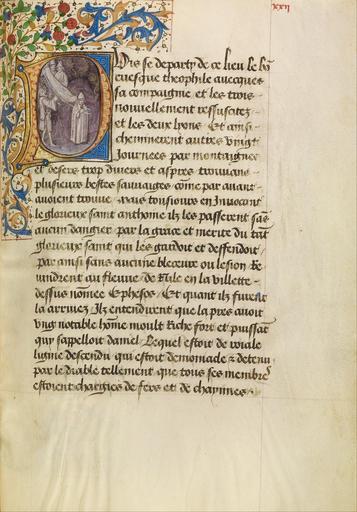 xxii
Puis se departy de ce lieu le bon
euesque theophile auecques
sa compaignie et les trois
nouuellement ressuscitez
et les deux lyons Et ainsi
cheminerent autres vingt
Journees par montaignes
et desers trop diuers et aspres trouuans
plusieurs bestes sauuaiges come par auant
auoient trouue mais tousiours en Inuocant
le glorieux saint anthoine ilz les passerent sas
aucun dangier par la grace et merite du tat
glorieux saint qui les gardoit et deffendoit
par ainsi sans aucune bleceure ou lesion Ilz
vindrent au fleuue de Nile en la villette
dessus nomee Ephesos Et quant ilz furent
la arriuez Ilz entendirent que la pres auoit
vng notable home moult Riche fort et puissat
qui sappelloit daniel Lequel estoit de roiale
ligne descendu qui estoit demoniacle & detenu
par le diable tellement que tous ses membres
estoient chargies de fers et de chaynnes